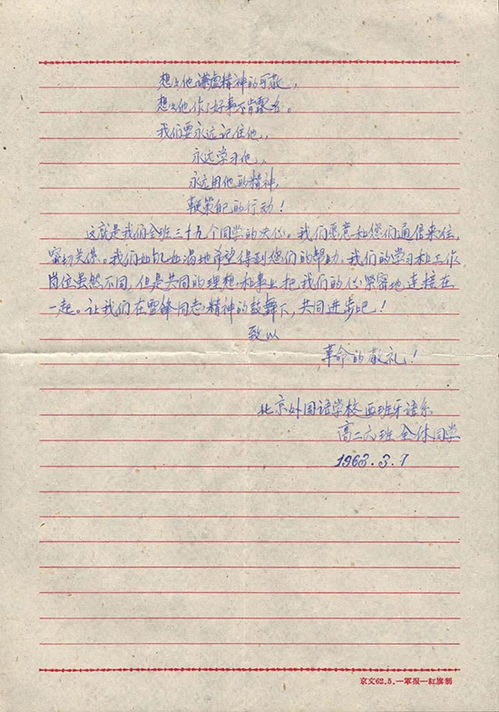 想想他谦虚精神的可敬，
想想他作了好事不肯露名。
我们要永远记住他，
永远学习他，
永远用他的精神，
鞭策自己的行动！
这就是我们全班三十九个同学的决心。我们愿意和您们通信来往，
密切关系。我们如饥如渴地希望得到您们的帮助。我们的学习和工作
岗位虽然不同，但是共同的理想和事业把我们的心紧密地连接在
一起。让我们在雷锋同志精神的鼓舞下，共同进步吧！
致以
革命的敬礼！
北京外国语学校西班牙语系
高二六班全体同学
1963.3.7
京文62.5.—军报—红旗制